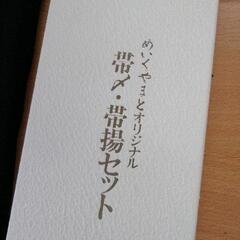 めいくやまとオリジナル
帯〆・帯揚セット